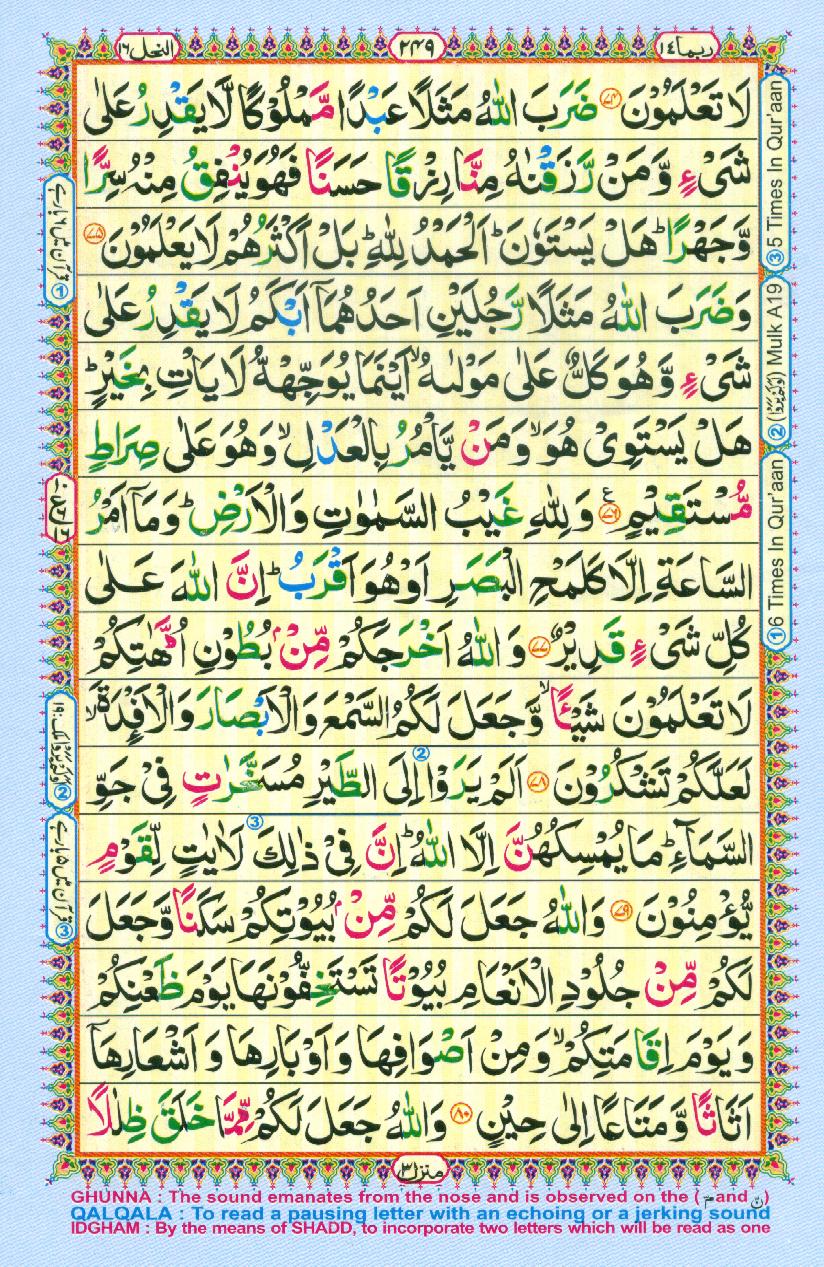 النحل ١٦
٢٤٩
ربما ١٤
لَا تَعْلَمُوْنَ ﴿٧٤﴾ ضَرَبَ اللّٰهُ مَثَلًا عَبْدًا مَّمْلُوْكًا لَّا يَقْدِرُ عَلٰى
شَىْءٍ وَّمَنْ رَّزَقْنٰهُ مِنَّا رِزْقًا حَسَنًا فَهُوَ يُنْفِقُ مِنْهُ سِرًّا
وَّجَهْرًا ؕ هَلْ يَسْتَوٗنَ ؕ اَلْحَمْدُ لِلّٰهِ ؕ بَلْ اَكْثَرُهُمْ لَا يَعْلَمُوْنَ ﴿٧٥﴾
وَضَرَبَ اللّٰهُ مَثَلًا رَّجُلَيْنِ اَحَدُهُمَاۤ اَبْكَمُ لَا يَقْدِرُ عَلٰى
شَىْءٍ وَّهُوَ كَلٌّ عَلٰى مَوْلٰىهُ ۙ اَيْنَمَا يُوَجِّهْهُّ لَا يَاْتِ بِخَيْرٍ ؕ
هَلْ يَسْتَوِىْ هُوَ ۙ وَمَنْ يَّاْمُرُ بِالْعَدْلِ ۙ وَهُوَ عَلٰى صِرَاطٍ
مُّسْتَقِيْمٍ ﴿٧٦﴾ ع وَلِلّٰهِ غَيْبُ السَّمٰوٰتِ وَالْاَرْضِ ؕ وَمَاۤ اَمْرُ
السَّاعَةِ اِلَّا كَلَمْحِ الْبَصَرِ اَوْ هُوَ اَقْرَبُ ؕ اِنَّ اللّٰهَ عَلٰى
كُلِّ شَىْءٍ قَدِيْرٌ ﴿٧٧﴾ وَاللّٰهُ اَخْرَجَكُمْ مِّنْۢ بُطُوْنِ اُمَّهٰتِكُمْ
لَا تَعْلَمُوْنَ شَيْـًٔا ۙ وَّجَعَلَ لَكُمُ السَّمْعَ وَالْاَبْصَارَ وَالْاَفْـِٕدَةَ ۙ
لَعَلَّكُمْ تَشْكُرُوْنَ ﴿٧٨﴾ اَلَمْ يَرَوْا ② اِلَى الطَّيْرِ مُسَخَّرٰتٍ فِىْ جَوِّ
السَّمَآءِ ؕ مَا يُمْسِكُهُنَّ اِلَّا اللّٰهُ ؕ اِنَّ فِىْ ذٰلِكَ ③ لَاٰيٰتٍ لِّقَوْمٍ
يُّؤْمِنُوْنَ ﴿٧٩﴾ وَاللّٰهُ جَعَلَ لَكُمْ مِّنْۢ بُيُوْتِكُمْ سَكَنًا وَّجَعَلَ
لَكُمْ مِّنْ جُلُوْدِ الْاَنْعَامِ بُيُوْتًا تَسْتَخِفُّوْنَهَا يَوْمَ ظَعْنِكُمْ
وَيَوْمَ اِقَامَتِكُمْ ۙ وَمِنْ اَصْوَافِهَا وَاَوْبَارِهَا وَاَشْعَارِهَاۤ
اَثَاثًا وَّمَتَاعًا اِلٰى حِيْنٍ ﴿٨٠﴾ وَاللّٰهُ جَعَلَ لَكُمْ مِّمَّا خَلَقَ ظِلٰلًا
③ 5 Times In Qur'aan
② (اَوَلَمْ يَرَوْا) Mulk A19
① 6 Times In Qur'aan
① قرآن میں ٦ بار ہے
② اَوَلَمْ يَرَوْا ملک: ١٩
③ قرآن میں ٥ بار ہے
منزل ٣
GHUNNA : The sound emanates from the nose and is observed on the ( مّ and نّ )
QALQALA : To read a pausing letter with an echoing or a jerking sound
IDGHAM : By the means of SHADD, to incorporate two letters which will be read as one